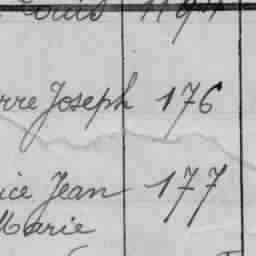 Louis
rre Joseph 176
ice Jean 177
Marie